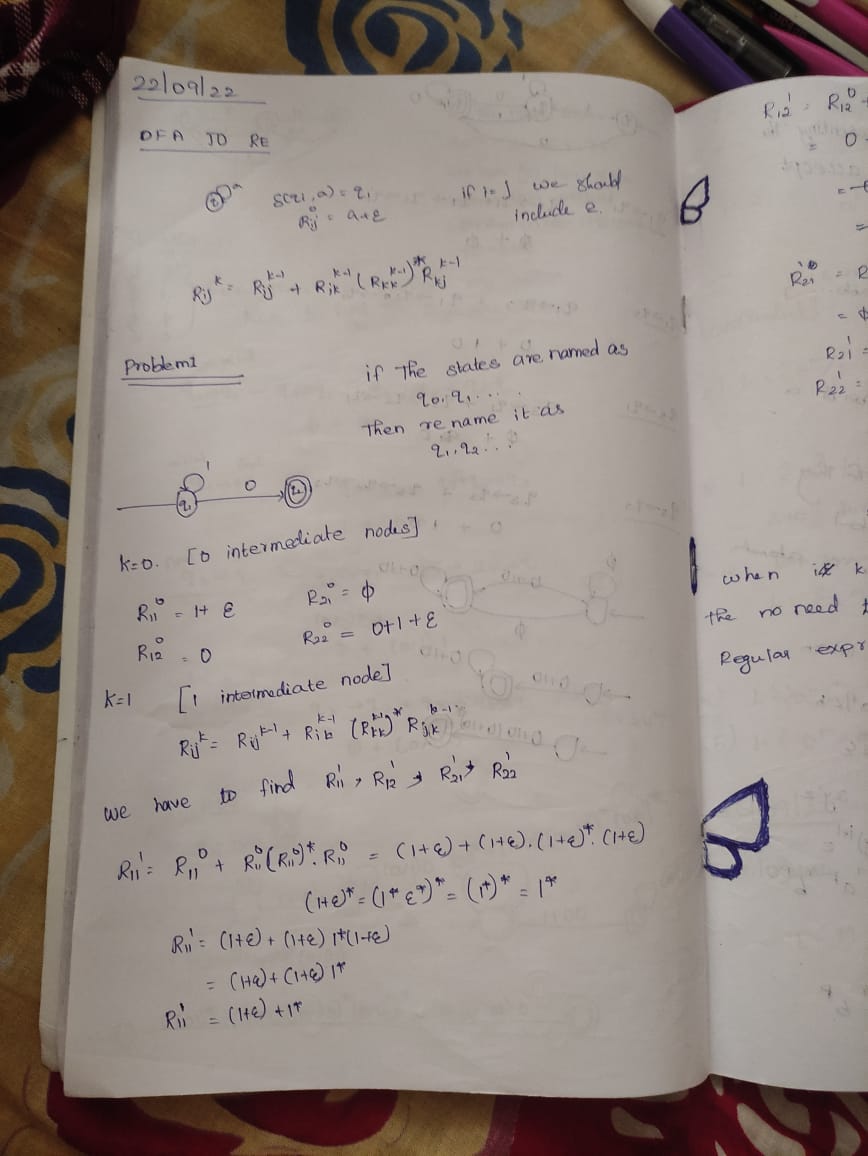 22/09/22
DFA TO RE
a δ(q1, a) = q1 , if i=j we should
Rij⁰ = a+ε include e.
Rij^k = Rij^k-1 + Rik^k-1 (Rkk^k-1)* Rkj^k-1
Problem1
if The states are named as
q0, q1 ....
Then rename it as
q1, q2 ...
1 0
q1 q2
k=0. [0 intermediate nodes]
R11⁰ = 1+ ε R21⁰ = ϕ
R12⁰ = 0 R22⁰ = 0+1+ε
k=1 [1 intermediate node]
Rij^k = Rij^k-1 + Rik^k-1 (Rkk^k-1)* Rjk^k-1
we have to find R11¹, R12¹, R21¹, R22¹
R11¹ = R11⁰ + R11⁰(R11⁰)*. R11⁰ = (1+ε) + (1+ε). (1+ε)*. (1+ε)
(1+ε)* = (1* ε*)* = (1*)* = 1*
R11¹ = (1+ε) + (1+ε) 1*(1+ε)
= (1+ε) + (1+ε) 1*
R11¹ = (1+ε) + 1*
R12¹ = R12⁰ +
= 0
=
=
R21 = R
= ϕ
R21¹ =
R22¹ =
when k
the no need
Regular